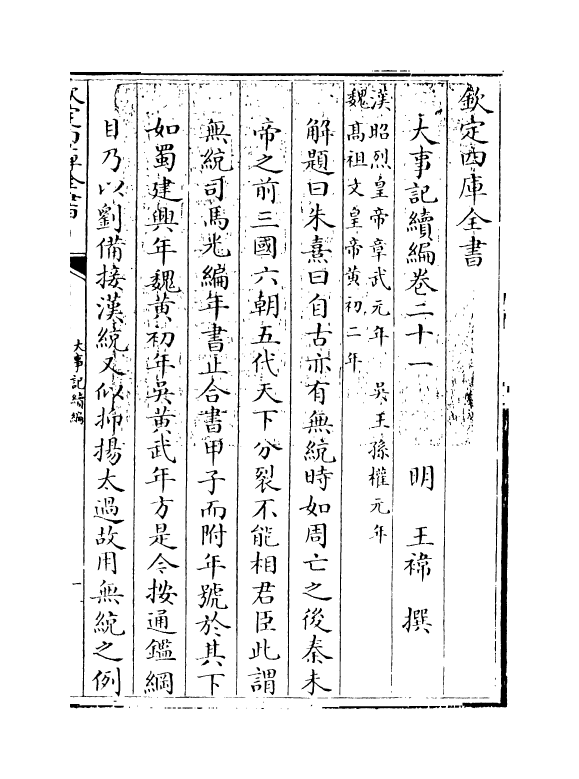 欽定四庫全書
大事記續編卷二十一　明　王禕　撰
漢昭烈皇帝章武元年　吳王孫權元年
魏高祖文皇帝黃初二年
解題曰朱熹曰自古亦有無統時如周亡之後秦未
帝之前三國六朝五代天下分裂不能相君臣此謂
無統司馬光編年書止合書甲子而附年號於其下
如蜀建興年魏黃初年吳黃武年方是今按通鑑綱
目乃以劉備接漢統又似抑揚太過故用無統之例
欽定四庫全書
大事記續編
一